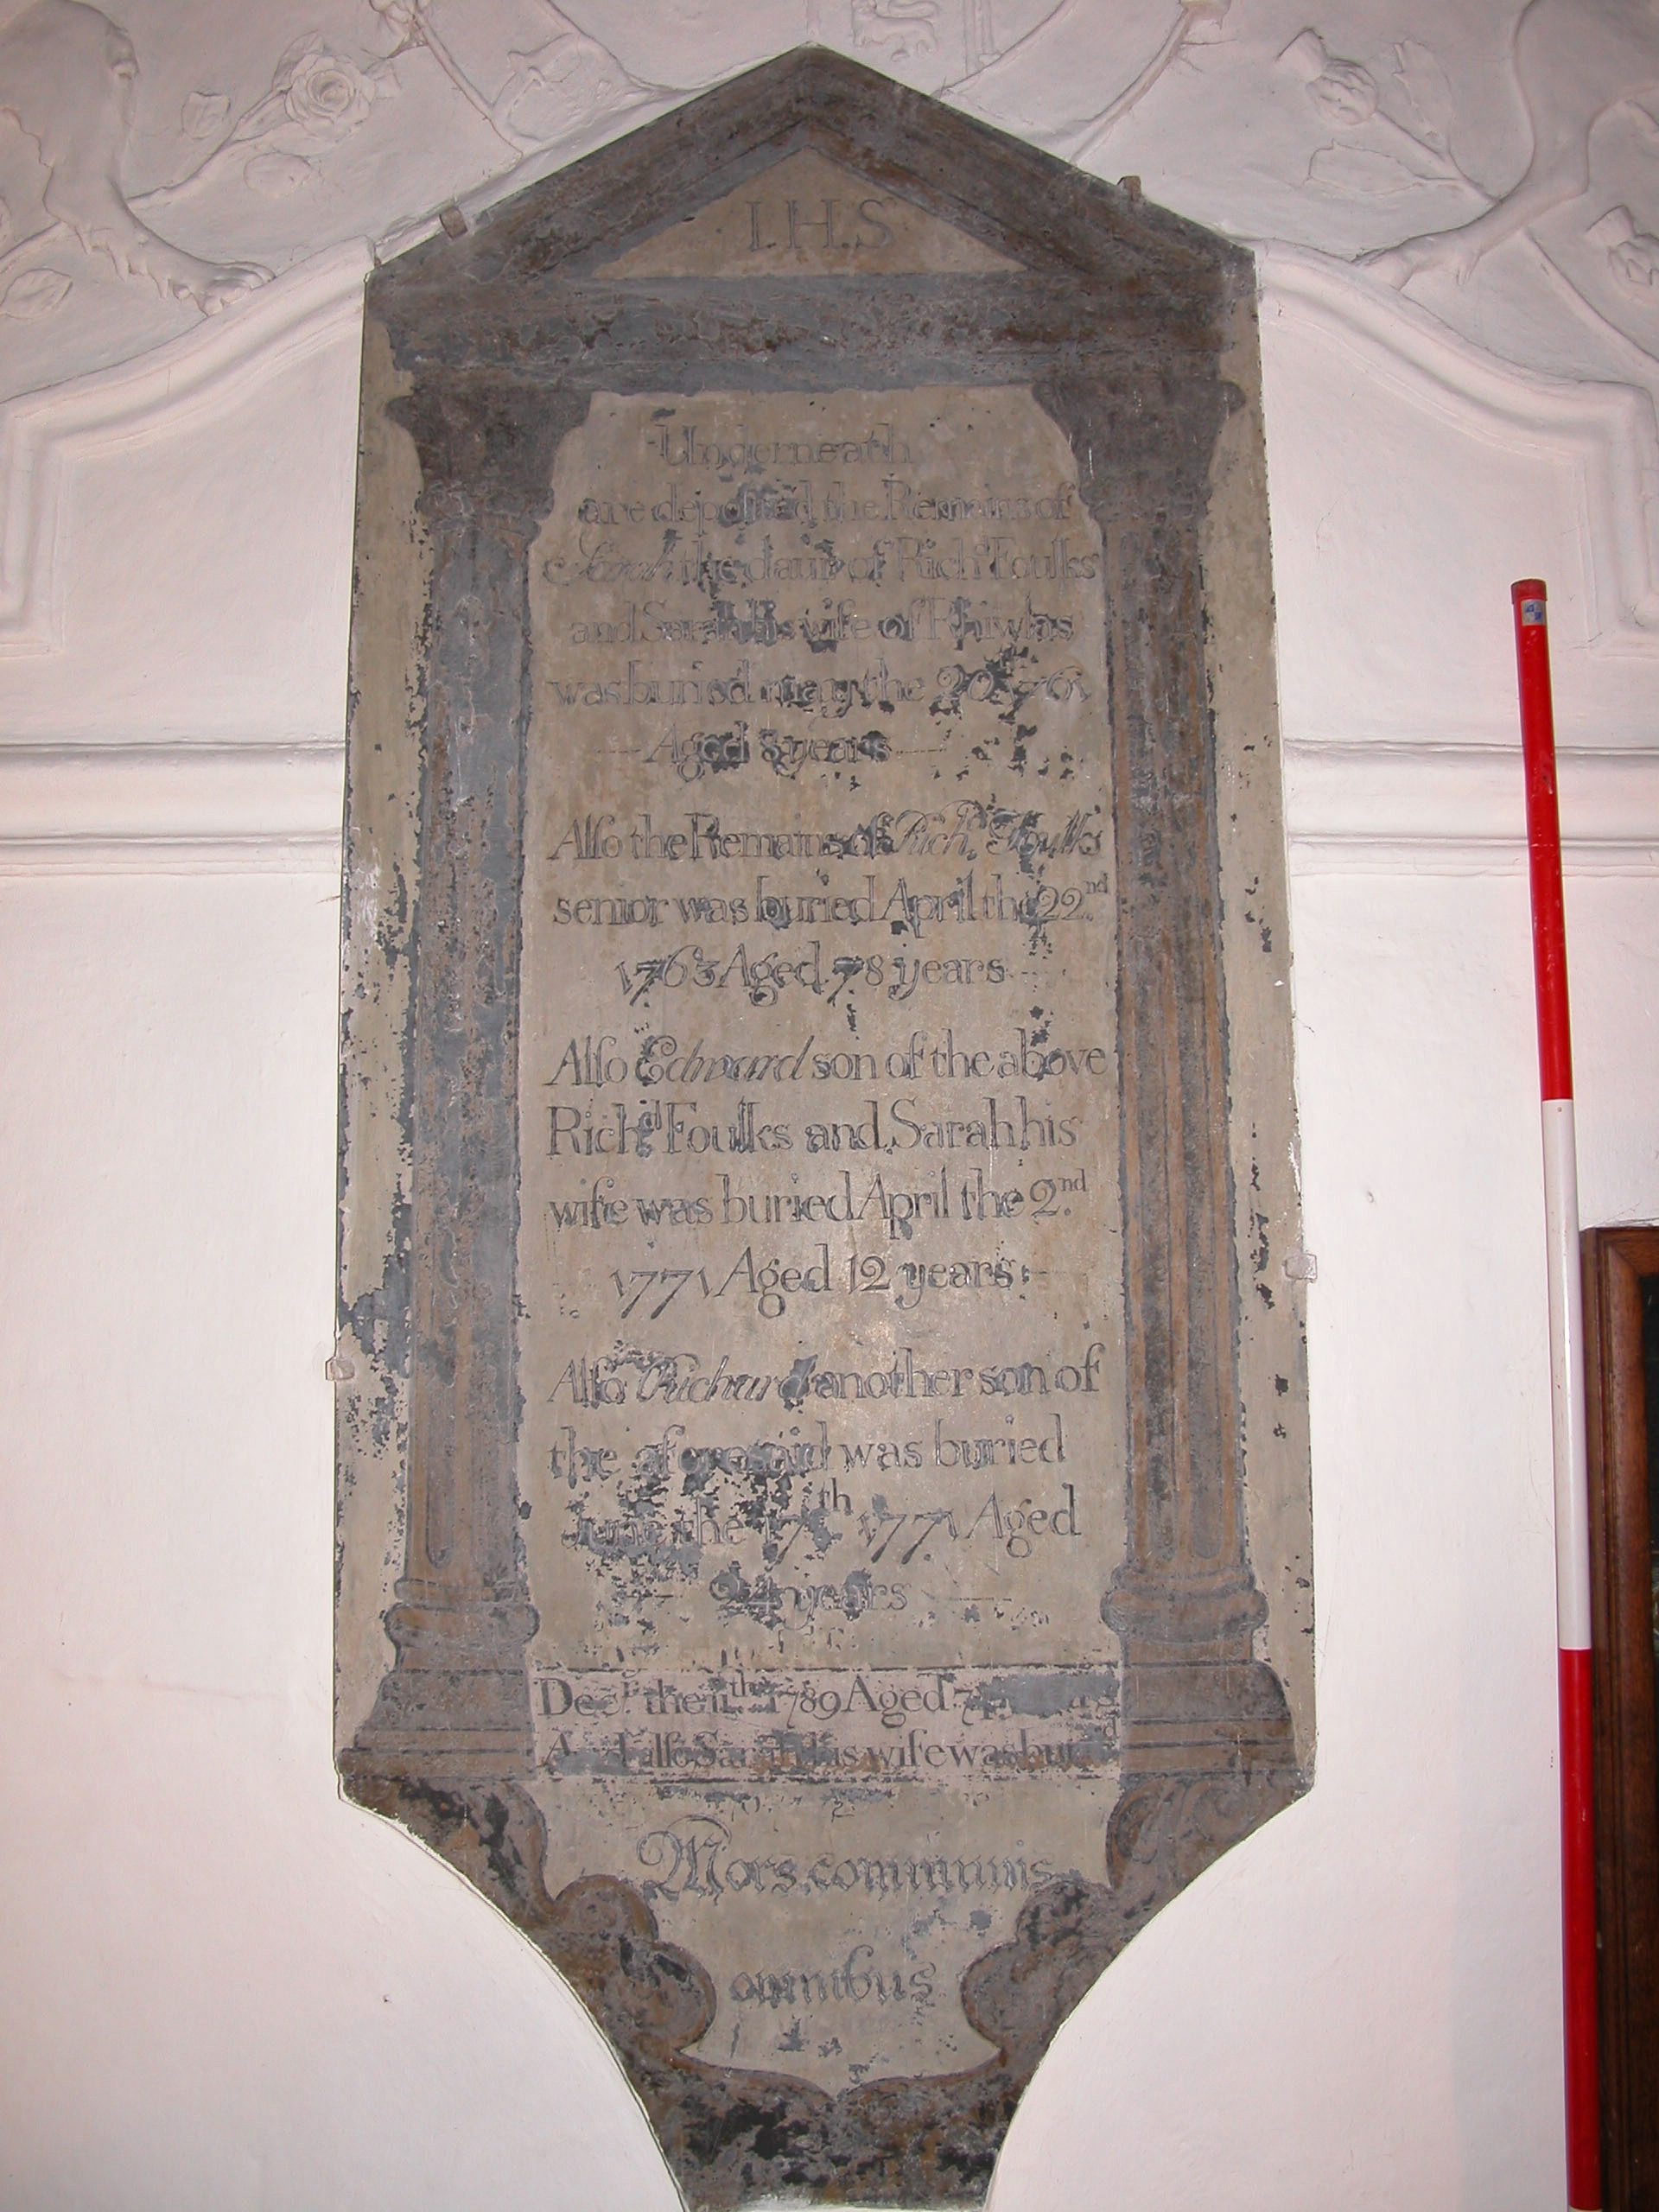 I.H.S
Underneath
are deposited the Remains of
Sarah the daur of Richd Foulks
and Sarah his wife of Rhiwlas
was buried may the 20 176
Aged 8 years
Alſo the Remains of Richd. Foulks
senior was buried April the 22nd.
1763 Aged 78 years
Alſo Edward son of the above
Richd Foulks and Sarah his
wife was buried April the 2nd.
1771 Aged 12 years
Alſo Richard another son of
the aforesaid was buried
June the 17th 1771 Aged
24 years
Decr. the 11th 1789 Aged
And alſo Sarah his wife was burid
Mors communis
omnibus